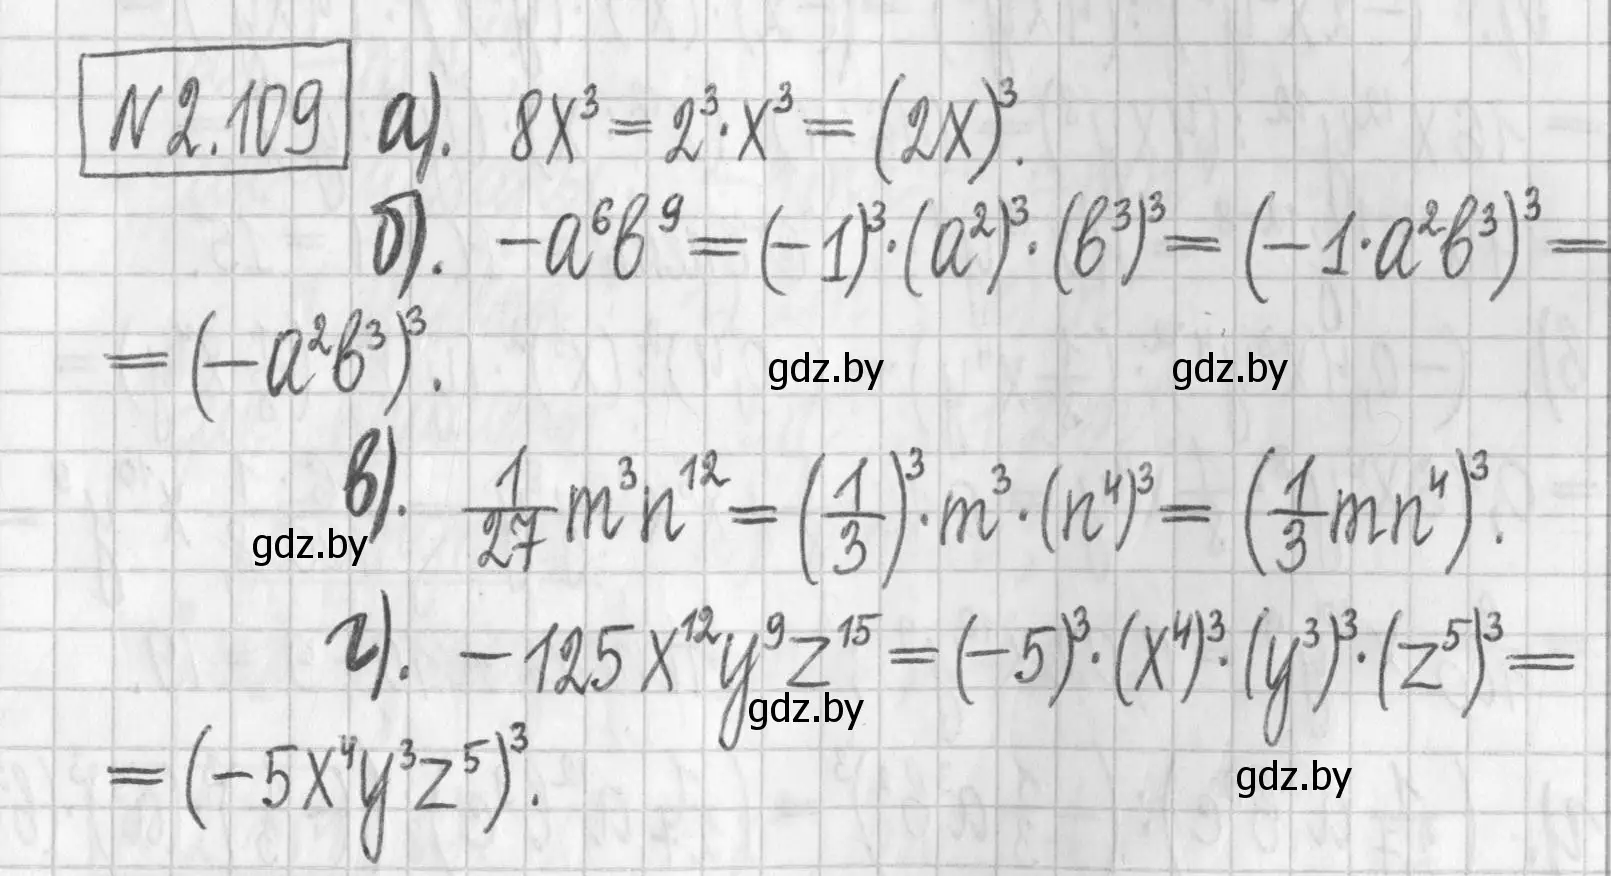 N 2.109 а). 8x³ = 2³·x³ = (2x)³.
б). -a⁶b⁹ = (-1)³·(a²)³·(b³)³ = (-1·a²b³)³ =
= (-a²b³)³.
gdz.by gdz.by
в). 1/27 m³n¹² = (1/3)³·m³·(n⁴)³ = (1/3 mn⁴)³.
gdz.by
г). -125x¹²y⁹z¹⁵ = (-5)³·(x⁴)³·(y³)³·(z⁵)³ =
gdz.by
= (-5x⁴y³z⁵)³.
gdz.by